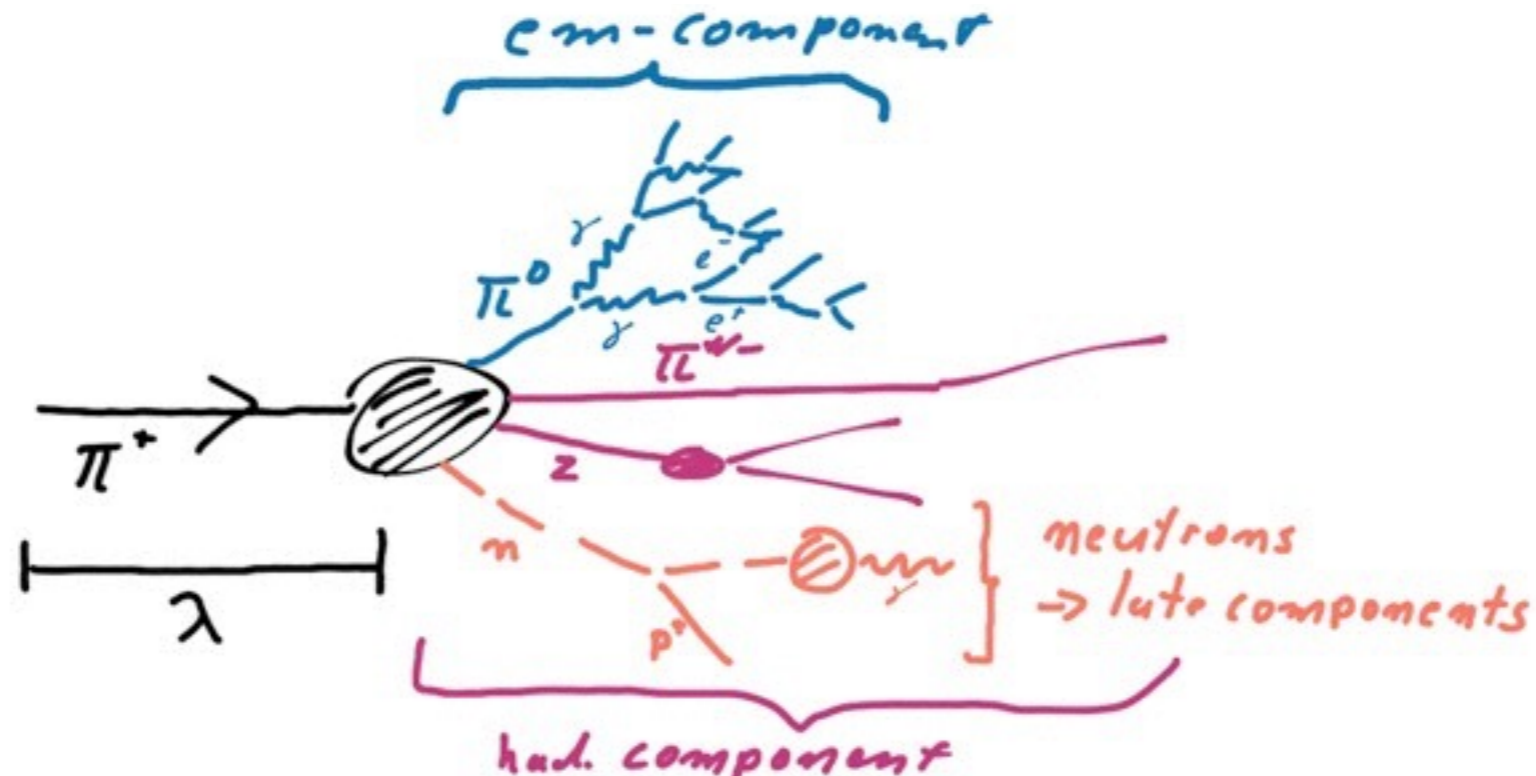 em-component
γ
π⁰
e⁻
γ
e⁺
π⁺/⁻
π⁺
z
n
neutrons
γ
→ late components
λ
had. component